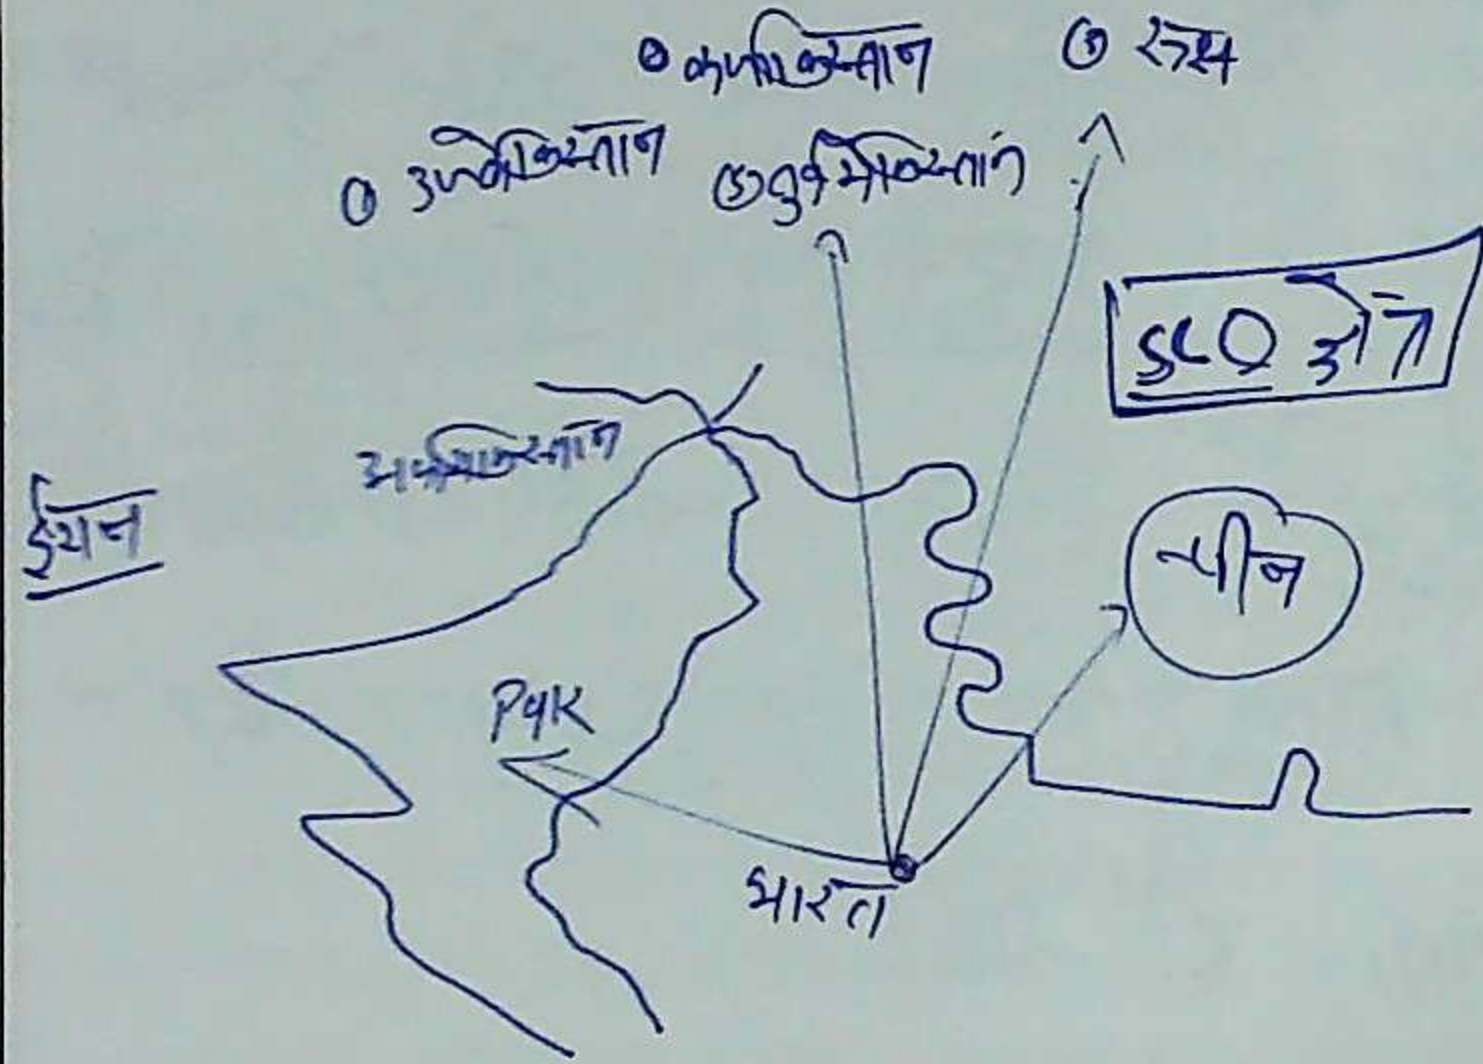 ② कजाकिस्तान
③ रूस
① उज्बेकिस्तान
तुर्कमेनिस्तान
SCO क्षेत्र
अफगानिस्तान
ईरान
चीन
PAK
भारत